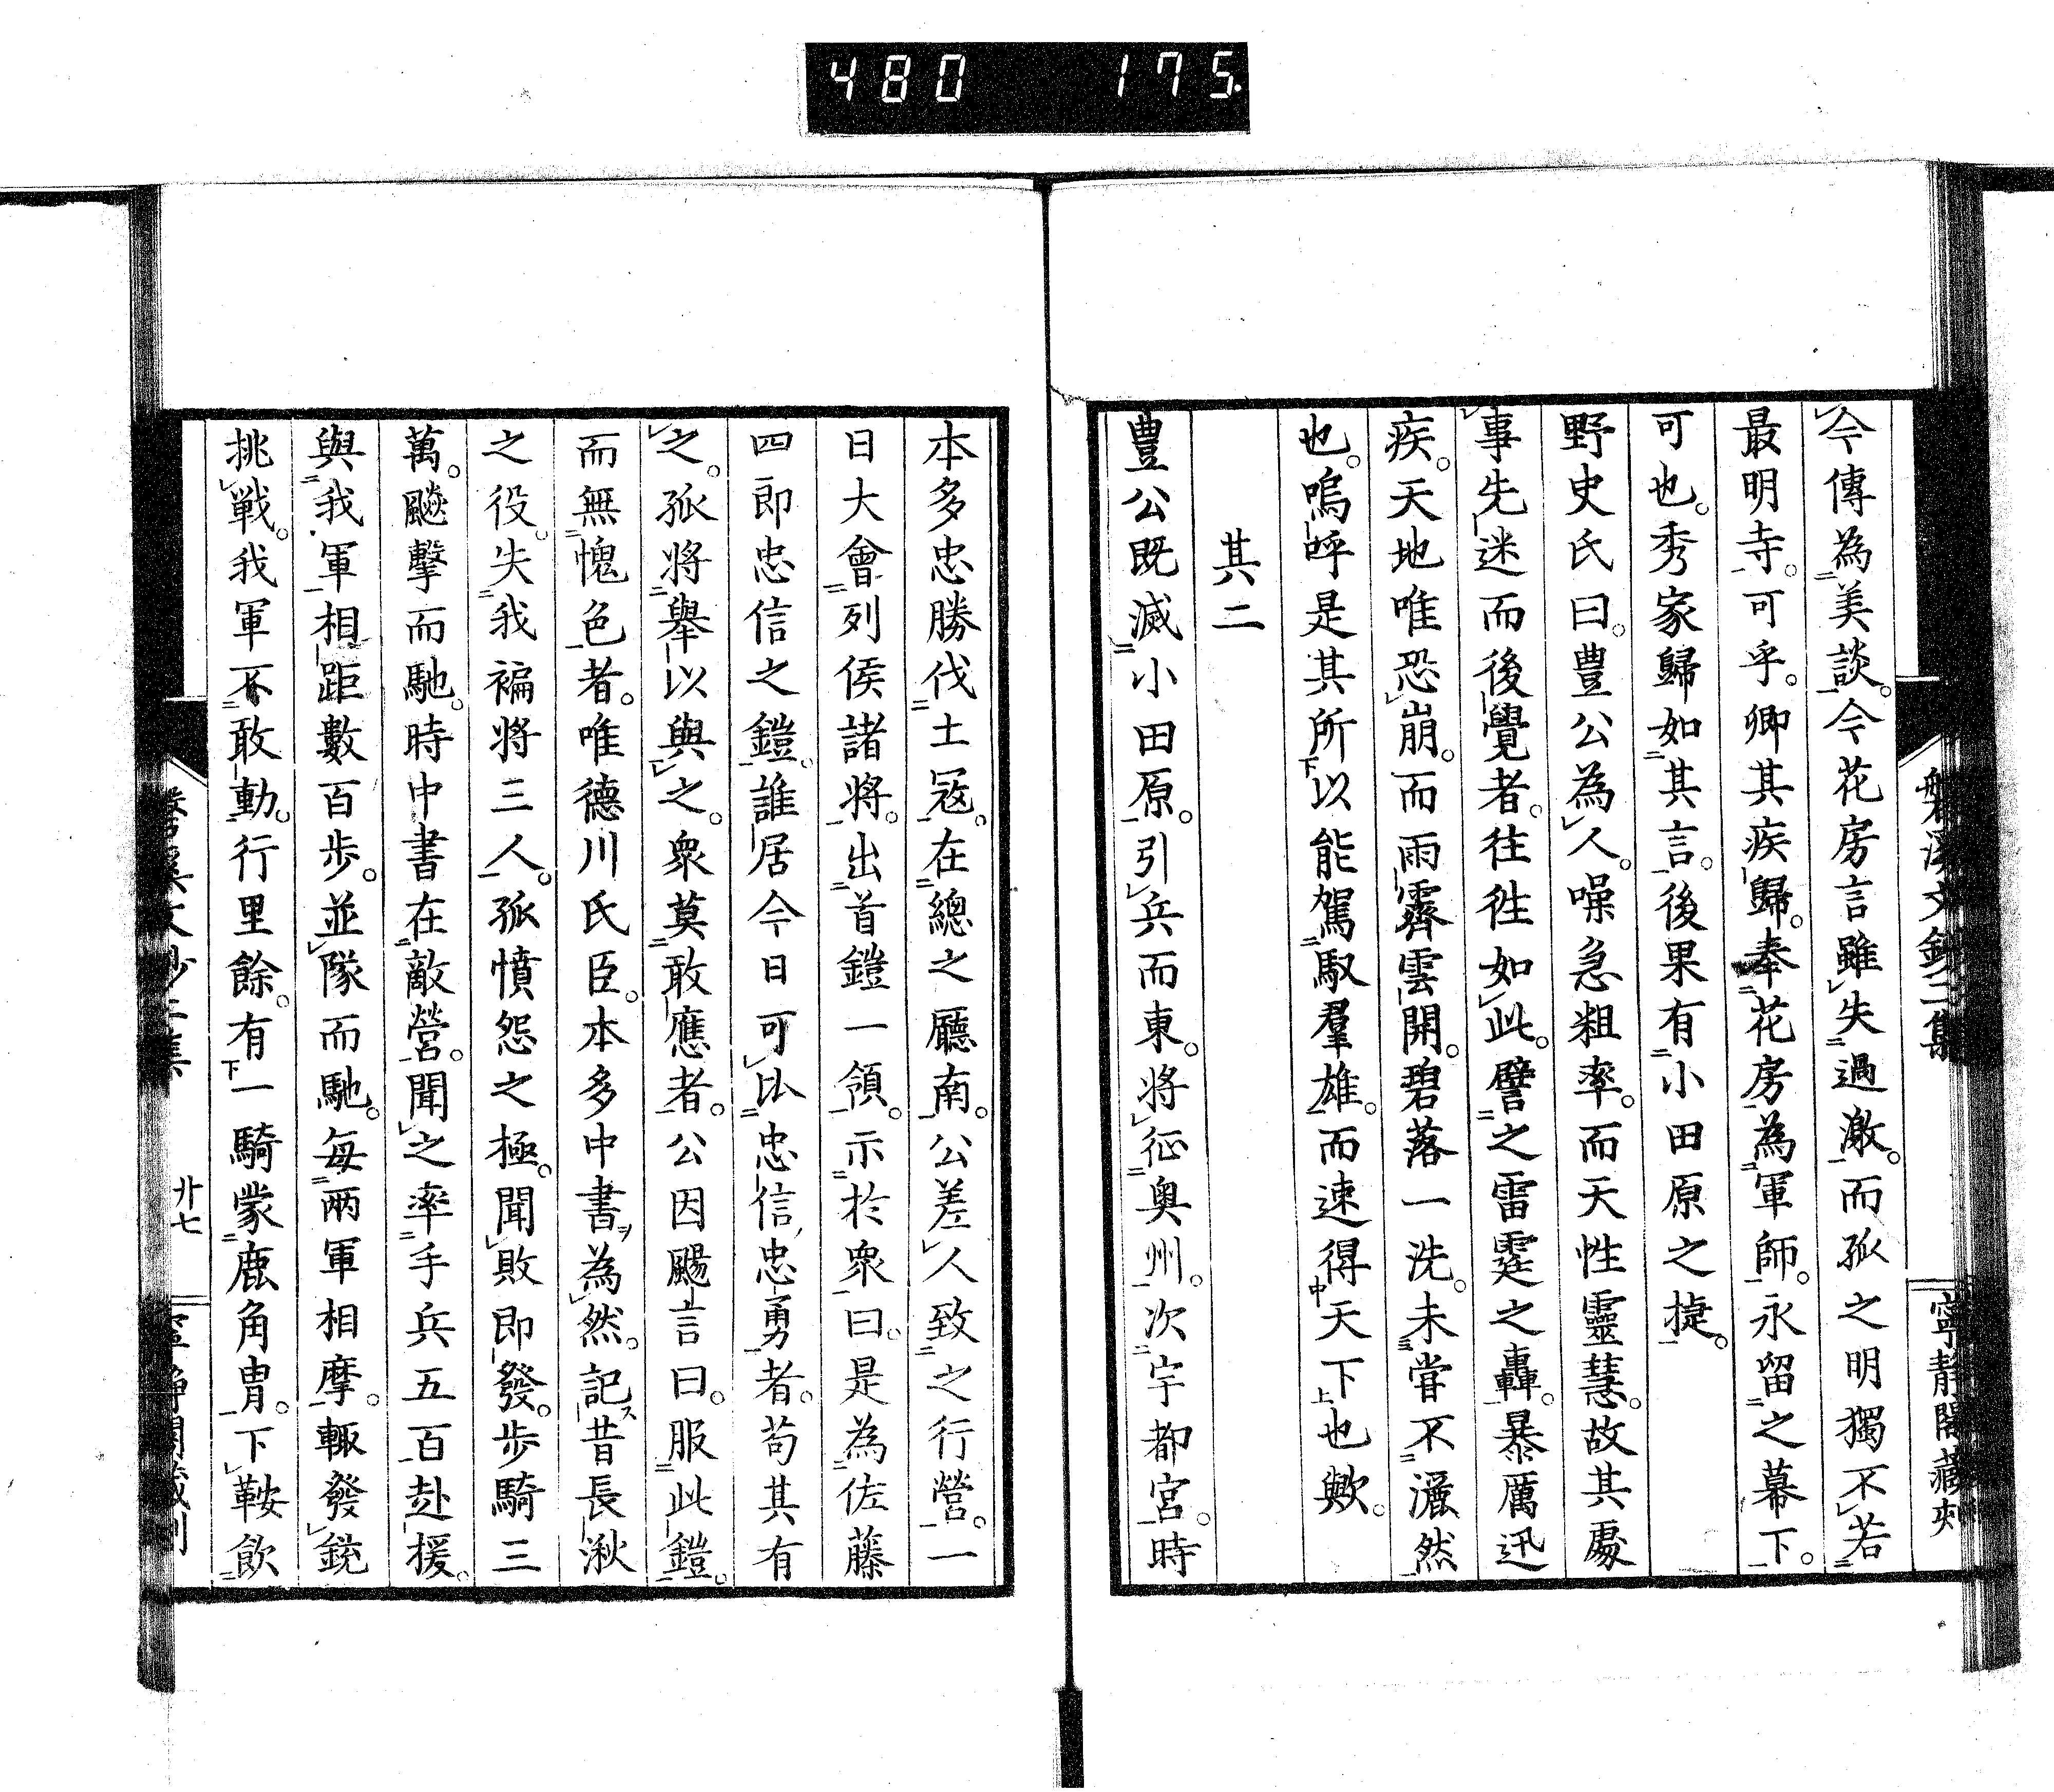 480 175
今傳為美談。今花房言雖失過激。而孤之明獨不若
最明寺。可乎。卿其疾歸。奉花房為軍師。永留之幕下。
可也。秀家歸如其言。後果有小田原之捷。
野史氏曰。豊公為人。噪急粗率。而天性靈慧。故其處
事先迷而後覺者。往往如此。譬之雷霆之轟。暴厲迅
疾。天地唯恐崩。而雨霽雲開。碧落一洗。未嘗不灑然
也。嗚呼是其所以能駕馭羣雄。而速得天下也歟。
其二
豊公既滅小田原。引兵而東。將征奥州。次宇都宮。時
寧静閣藏
本多忠勝伐土冦。在總之廳南。公差人致之行營。一
日大會列侯諸將。出首鎧一領。示於衆曰。是為佐藤
四郎忠信之鎧。誰居今日可比忠信忠勇者。苟其有
之。孤將舉以與之。衆莫敢應者。公因颺言曰。服此鎧。
而無愧色者。唯德川氏臣。本多中書為然。記昔長湫
之役。失我褊將三人。孤憤怨之極。聞敗即發。步騎三
萬。飈擊而馳。時中書在敵營。聞之率手兵五百赴援。
與我軍相距數百步。並隊而馳。每兩軍相摩。輙發銃
挑戰。我軍不敢動。行里餘。有一騎蒙鹿角冑。下鞍飲
廿七